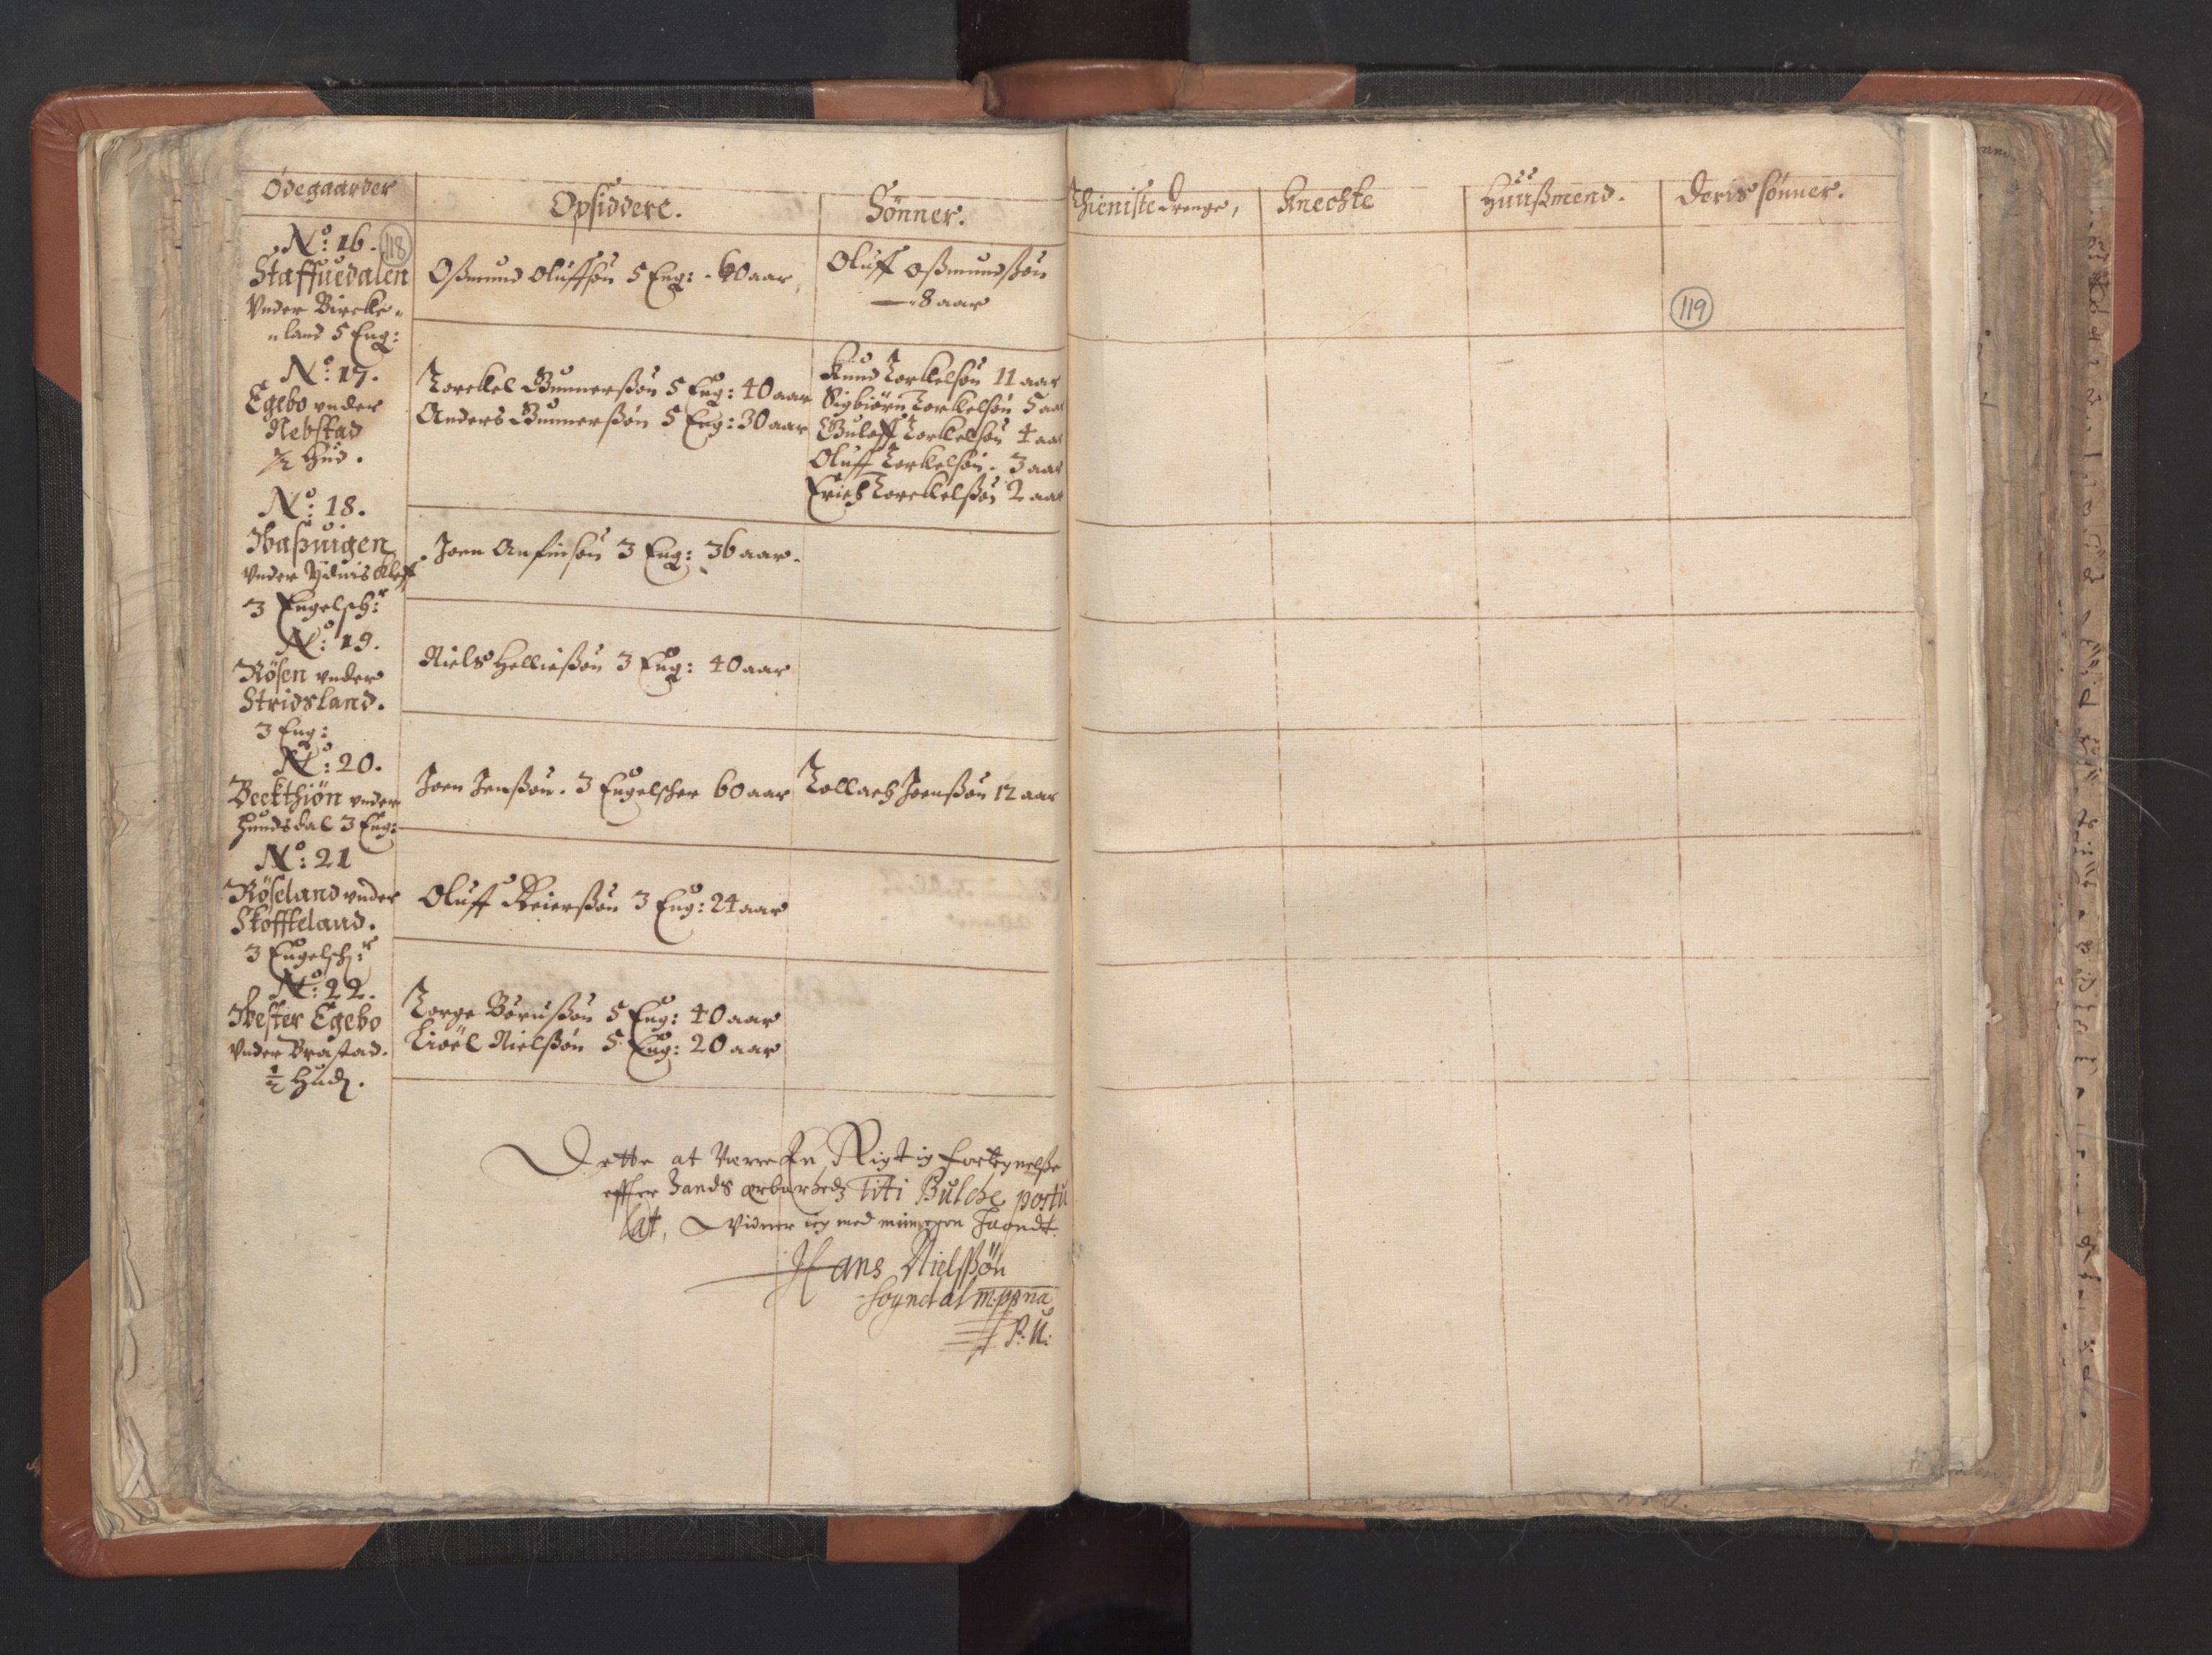 Ødegaarder
Opsiddere.
Sönner.
Thieniste drenge,
Knechte
Huußmend.
Deris sönner.
No: 16.
118
Staffuedalen
Vnder Bircke-
-land 5 Eng:
Oßmund Oluffsøn 5 Eng: - 60 aar,
Oluff Oßmundßøn
8 aar
119
No: 17.
Egebo vnder
Nebstad
½ Hud.
Torckel Gunnerßøn 5 Eng: 40 aar
Anders Gunnerßøn 5 Eng: 30 aar
Knud Torkelsøn 11 aar
Sigbiørn Torkelsøn 5 aar
Torkelsøn 4 aar
Oluff Torkelsøn. 3 aar
Erich Torckelßøn 2 aar
No: 18.
Waßuigen
Vnder Kleff
3 Engelsch:r
Joen Anfinsøn 3 Eng: 36 aar.
No: 19.
Røsen vnder
Stridsland.
3 Eng:
Niels Helließøn 3 Eng: 40 aar
No: 20.
Beckthiøn vnder
Hundsdal 3 Eng:
Joen Jenßøn. 3 Engelscher 60 aar
Tollach Joenßøn 12 aar
No: 21
Røseland vnder
Skoffteland.
3 Engelsch:r
Oluff Reierßøn 3 Eng: 24 aar
No: 22.
Wester Egebo
Vnder Brastad.
½ Hud.
Torge Børnßøn 5 Eng: 40 aar
Kioel Nielßøn 5 Eng: 20 aar
Dette at Vere En Rigtig Fortegnelße
effter hands erbarheds Titi Bulche postu
lat, Vidner ieg med min egen Haandt.
Hans Nielßøn
Sogndal mppria
P: U: